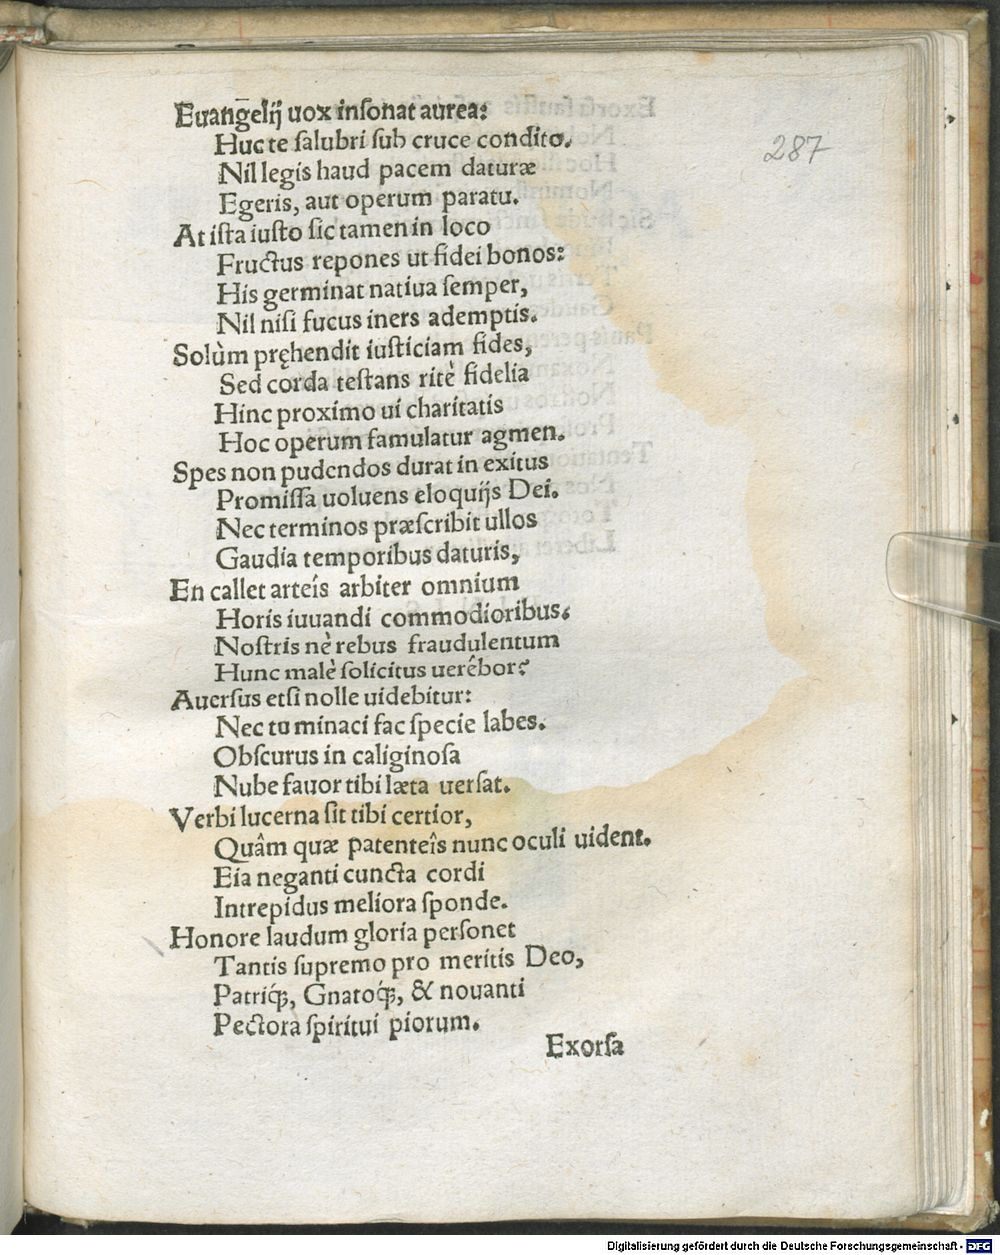 Euang̅elij uox inſonat aurea:
287
Huc te ſalubri ſub cruce condito.
Nil legis haud pacem daturæ
Egeris, aut operum paratu.
At iſta iuſto ſic tamen in loco
Fructus repones ut fidei bonos:
His germinat natiua ſemper,
Nil niſi fucus iners ademptis.
Solùm pręhendit iuſticiam fides,
Sed corda teſtans ritè fidelia
Hinc proximo ui charitatis
Hoc operum famulatur agmen.
Spes non pudendos durat in exitus
Promiſſa uoluens eloquijs Dei.
Nec terminos præſcribit ullos
Gaudia temporibus daturis,
En callet arteis arbiter omnium
Horis iuuandi commodioribus.
Noſtris nè rebus fraudulentum
Hunc malè ſolicitus uerêbor?
Auerſus etſi nolle uidebitur:
Nec tu minaci fac ſpecie labes.
Obſcurus in caliginoſa
Nube fauor tibi læta uerſat.
Verbi lucerna ſit tibi certior,
Quâm quæ patenteîs nunc oculi uident.
Eia neganti cuncta cordi
Intrepidus meliora ſponde.
Honore laudum gloria perſonet
Tantis ſupremo pro meritis Deo,
Patriq́;, Gnatoq́;, & nouanti
Pectora ſpiritui piorum.
Exorſa
Digitalisierung gefördert durch die Deutsche Forschungsgemeinschaft - DFG